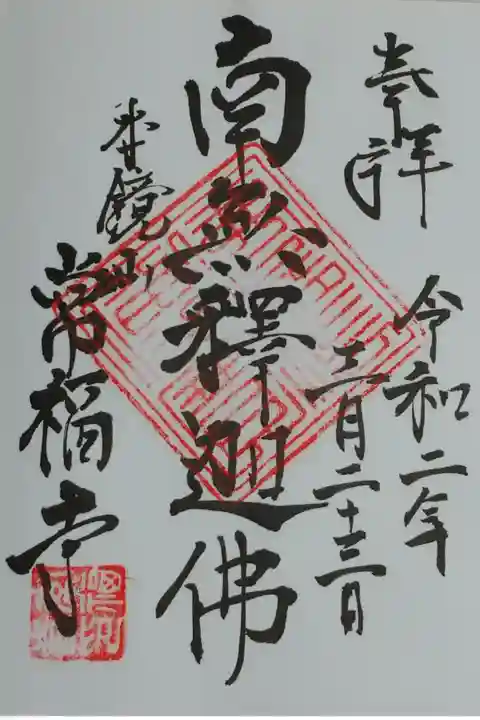 奉拝
令和二年
月二十三日
南無釋迦佛
鏡山
常福寺